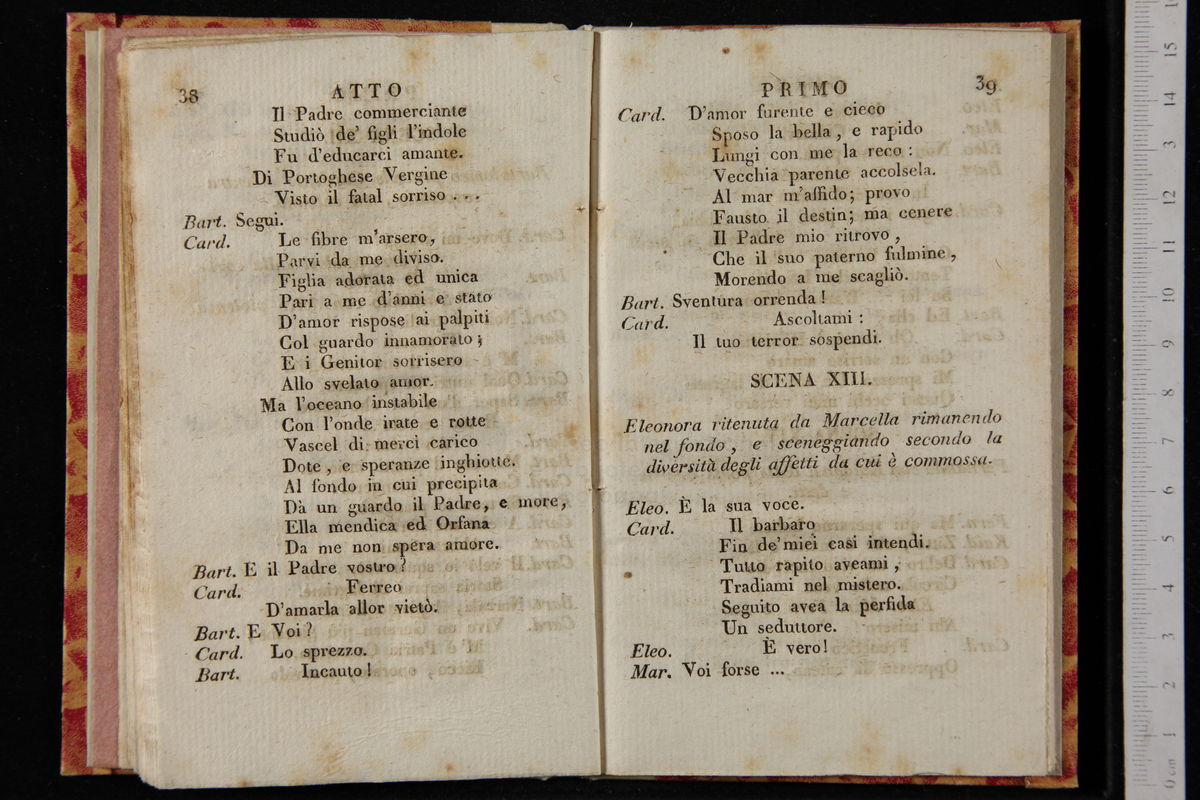 38 ATTO
Il Padre commerciante
Studiò de' figli l'indole
Fu d'educarci amante.
Di Portoghese Vergine
Visto il fatal sorriso . . .
Bart. Segui.
Card. Le fibre m'arsero,
Parvi da me diviso.
Figlia adorata ed unica
Pari a me d'anni e stato
D'amor rispose ai palpiti
Col guardo innamorato;
E i Genitor sorrisero
Allo svelato amor.
Ma l'oceano instabile
Con l'onde irate e rotte
Vascel di merci carico
Dote, e speranze inghiotte.
Al fondo in cui precipita
Dà un guardo il Padre, e more,
Ella mendica ed Orfana
Da me non spera amore.
Bart. E il Padre vostro?
Card. Ferreo
D'amarla allor vietò.
Bart. E Voi?
Card. Lo sprezzo.
Bart. Incauto!
PRIMO 39
Card. D'amor furente e cieco
Sposo la bella, e rapido
Lungi con me la reco:
Vecchia parente accolsela.
Al mar m'affido; provo
Fausto il destin; ma cenere
Il Padre mio ritrovo,
Che il suo paterno fulmine,
Morendo a me scagliò.
Bart. Sventura orrenda!
Card. Ascoltami:
Il tuo terror sospendi.
SCENA XIII.
Eleonora ritenuta da Marcella rimanendo
nel fondo, e sceneggiando secondo la
diversità degli affetti da cui è commossa.
Eleo. È la sua voce.
Card. Il barbaro
Fin de'miei casi intendi.
Tutto rapito aveami,
Tradiami nel mistero.
Seguito avea la perfida
Un seduttore.
Eleo. È vero!
Mar. Voi forse ...
0 cm 1 2 3 4 5 6 7 8 9 10 11 12 13 14 15